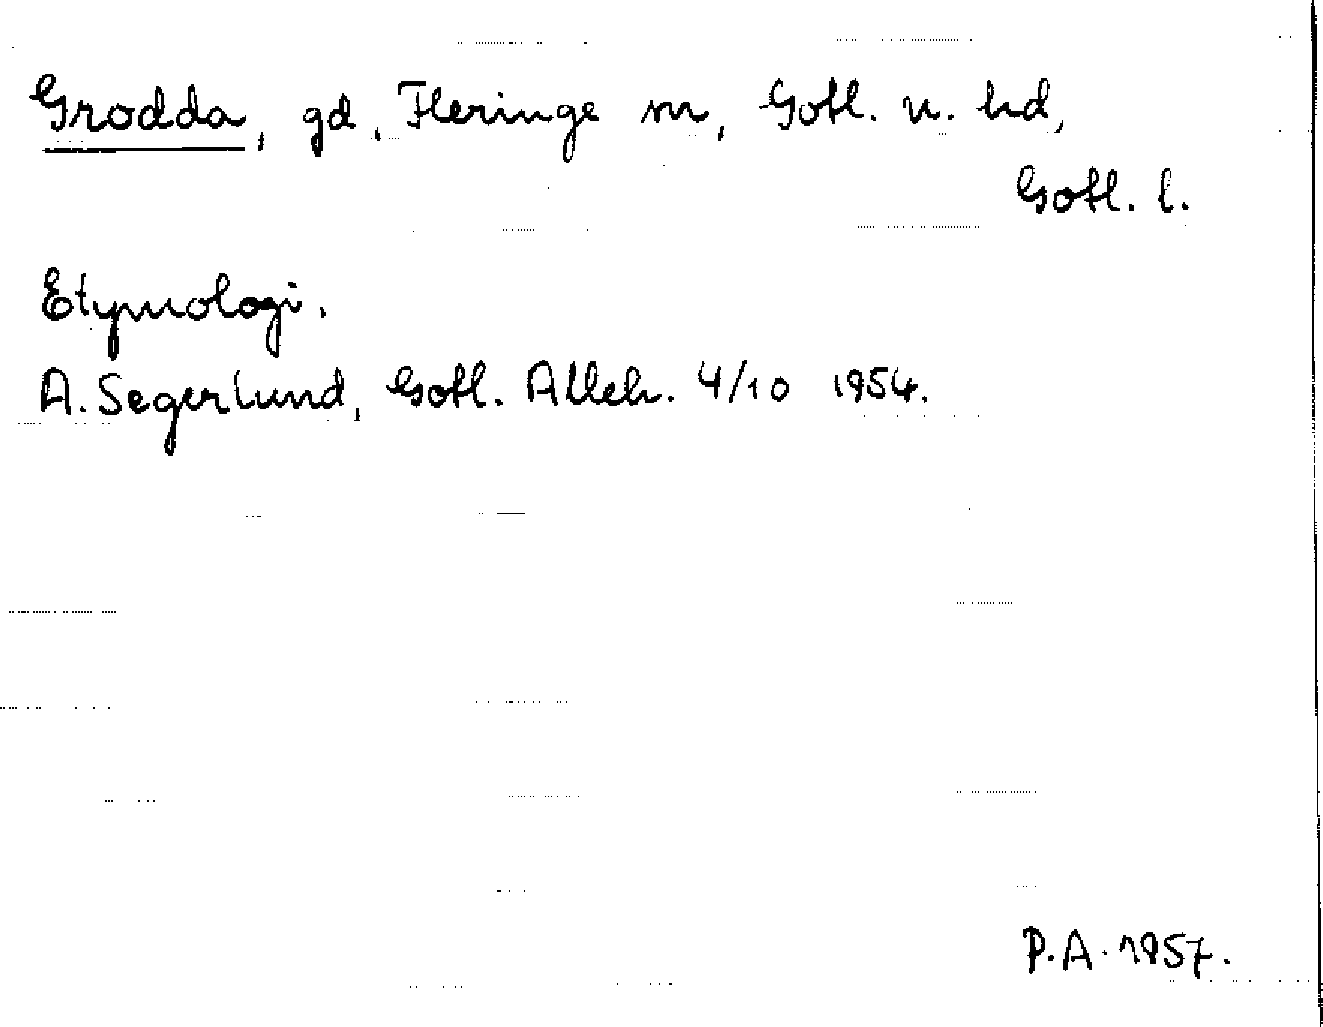 Grodda, gd, Fleringe sn, Gotl. n. hd,
Gotl. l.
Etymologi.
A. Segerlund, Gotl. Alleh. 4/10 1954.
P.A. 1957.